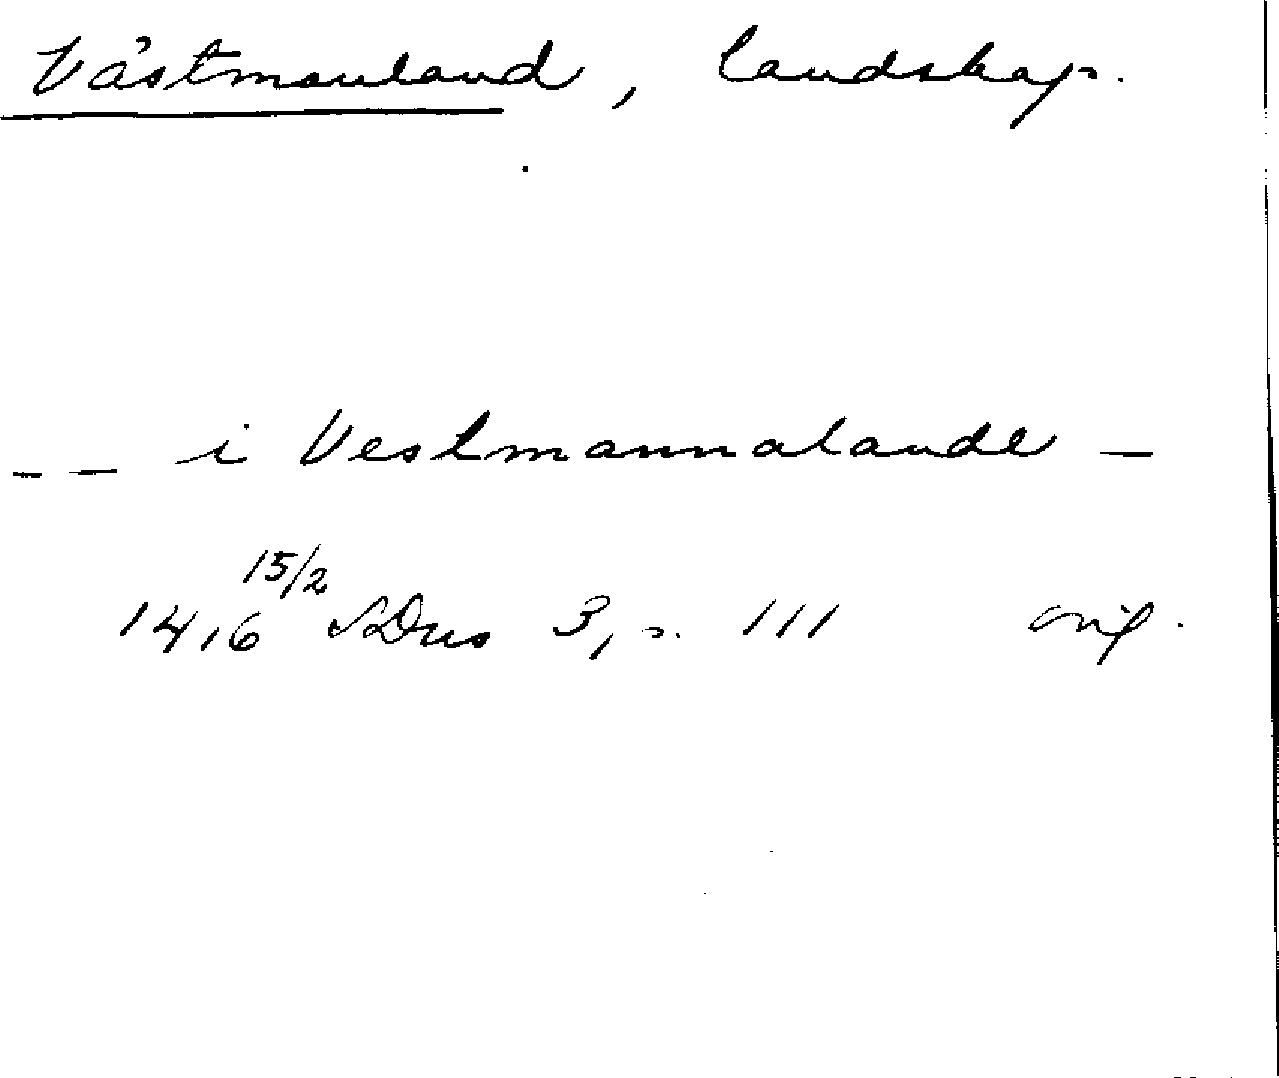 Västmanland, landskap.
_ _ i Vestmannalande _
15/2
1416 SDns 3, s. 111 orig.